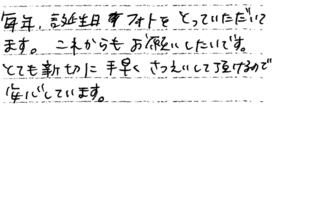 毎年、誕生日フォトをとっていただいて
ます。これからもお願いしたいです。
とても新切に手早くさつえいして頂けるので
安心しています。